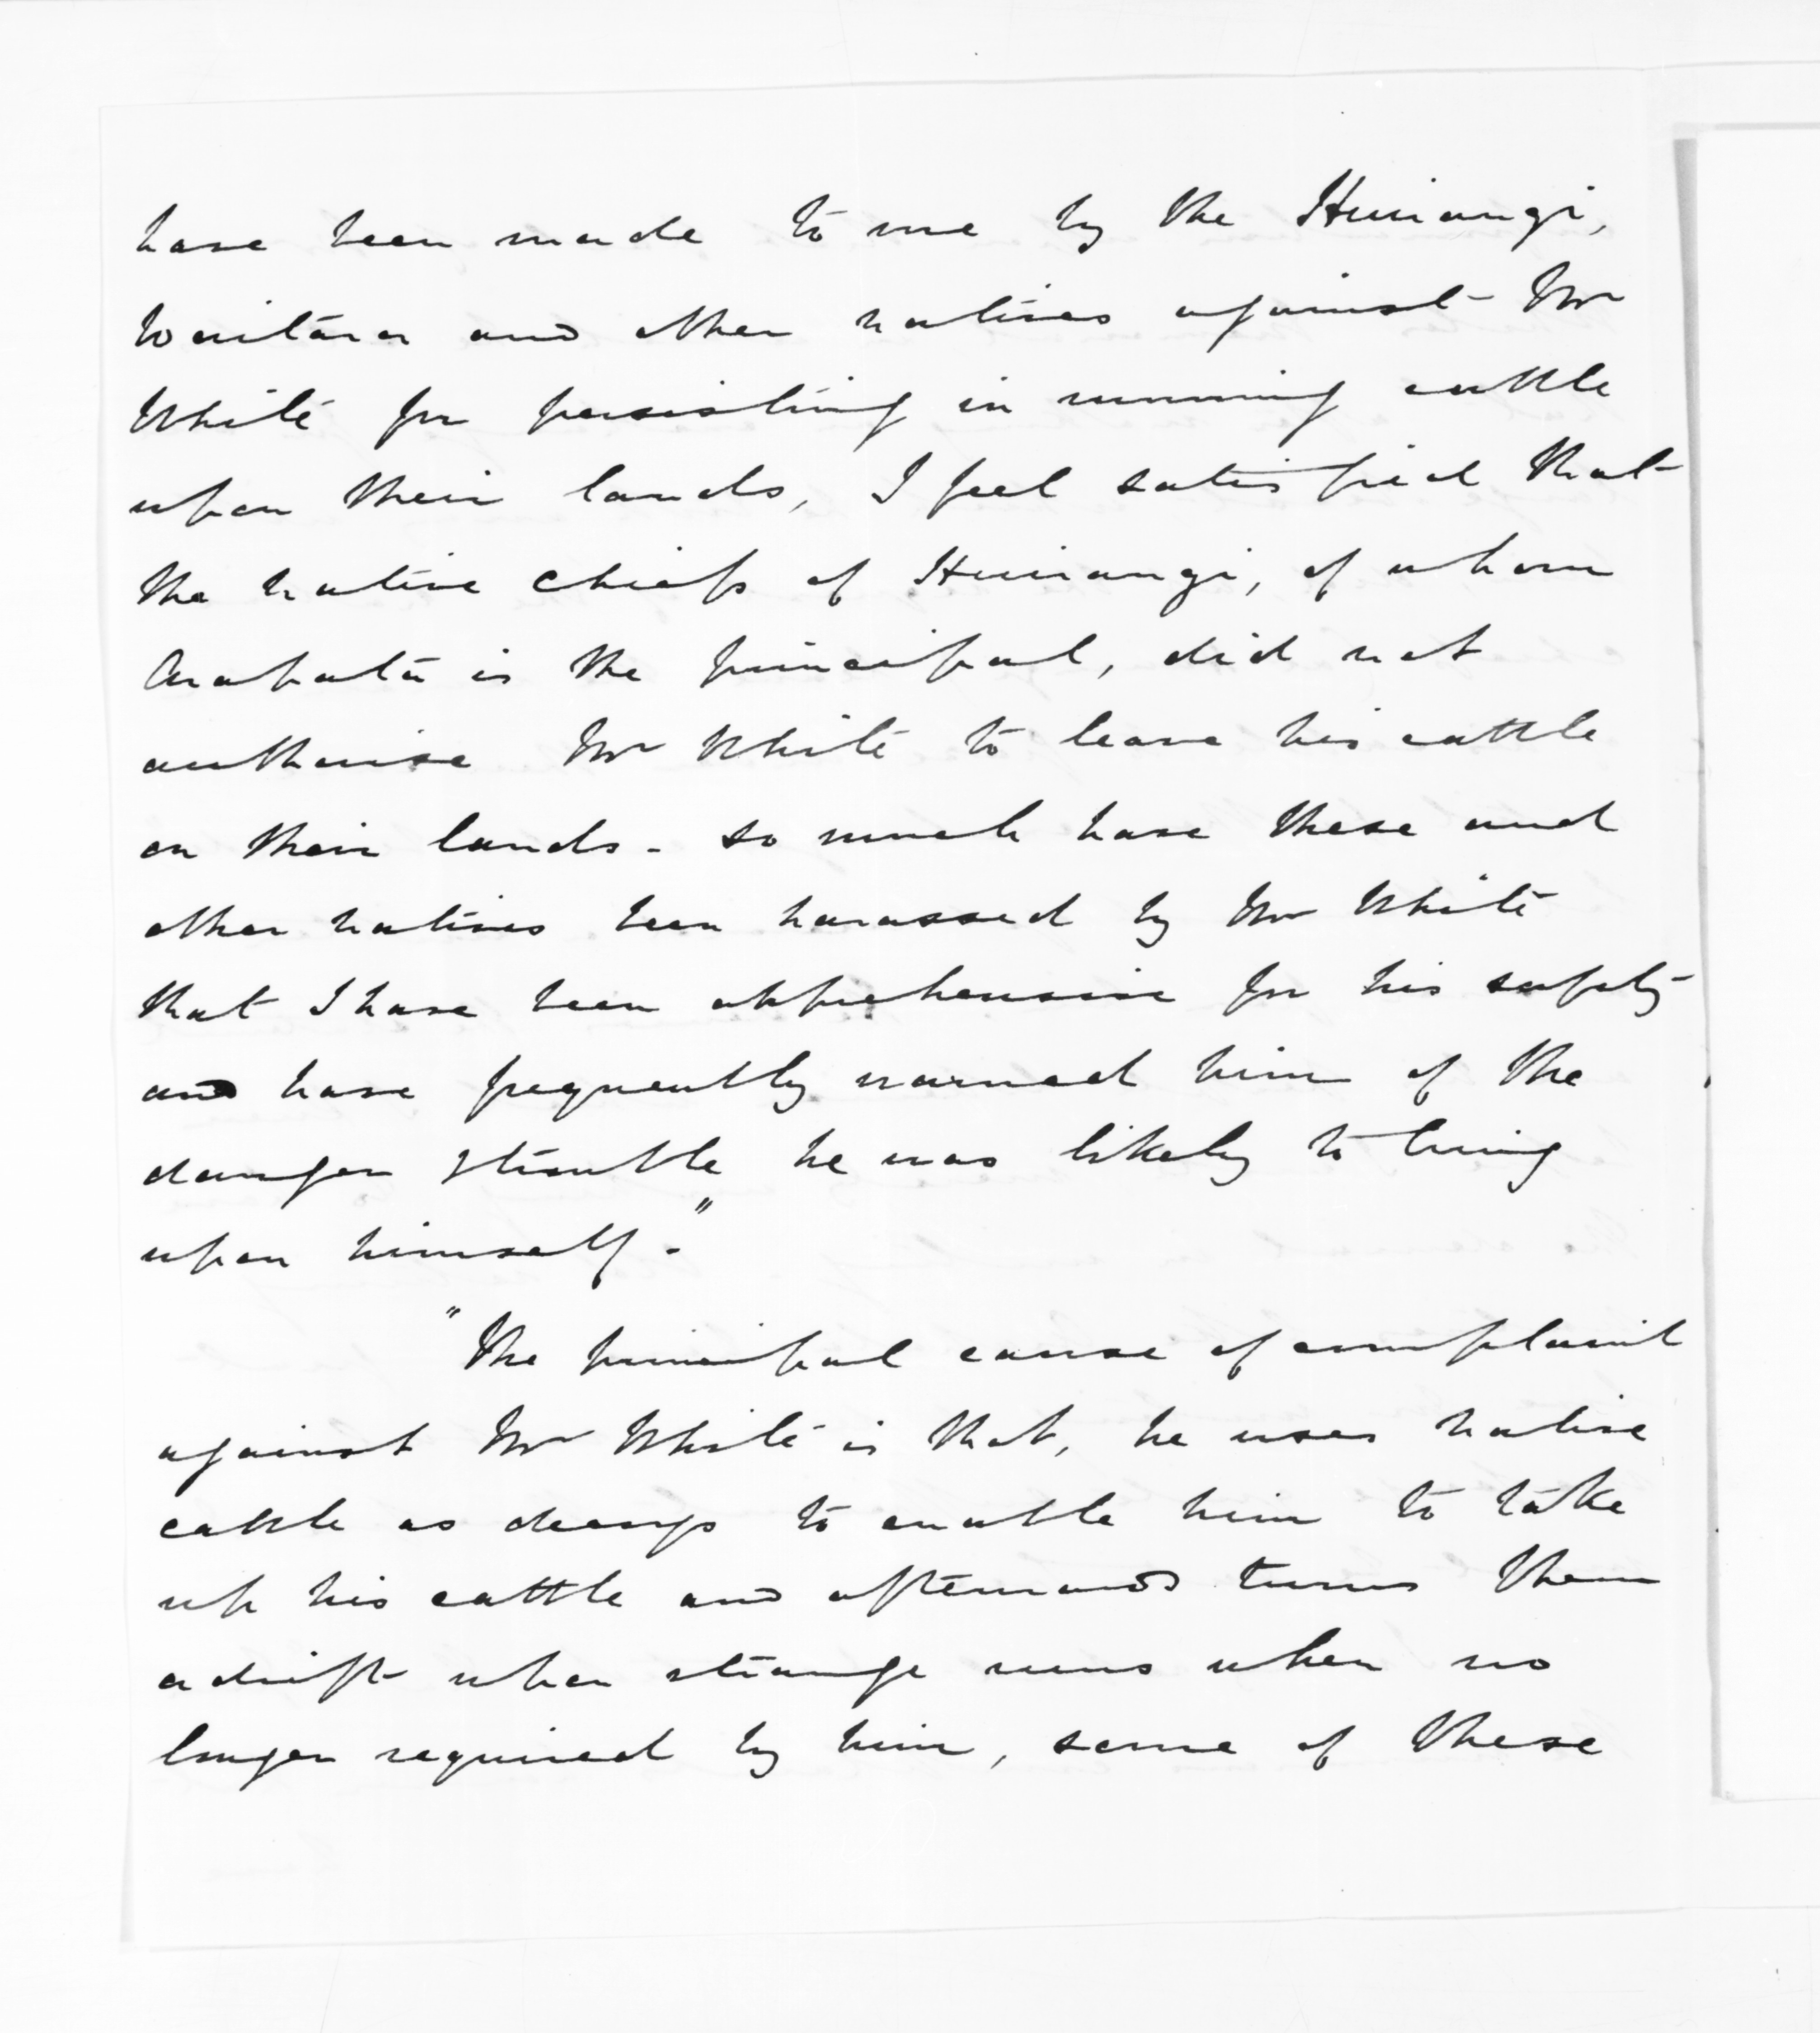 have been made to me by the Huirangi,
Waitara and other natives against Mr
White for persisting in running cattle
upon their lands, I feel satisfied that
the native chiefs of Huirangi, of whom
Arapata is the principal, did not
authorise Mr White to leave his cattle
on their lands - so much have these and
other natives been harassed by Mr White
that I have been apprehensive for his safety
and have frequently warned him of the
danger & trouble he was likely to bring
upon himself."
"The principal cause of complaint
against Mr White is that, he uses native
cattle as decoys to enable him to take
up his cattle and afterwards turns them
adrift upon strange runs when no
longer required by him, some of these